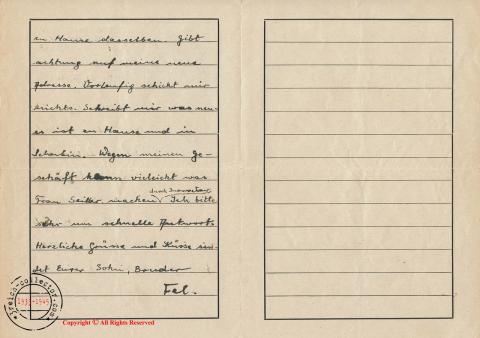 zu Hause dasselben. Gibt
achtung auf meine neue
Adresse. Vorläufig schickt mir
nichts. Schreibt mir was neu-
es ist zu Hause und in
Wegen meinen Ge-
schäft kann vieleicht was
Frau Seiller machen. Ich bitte
sehr um schnelle Antwort.
Herzliche Grüsse und Küsse sen-
det Eurer Sohn, Bruder
Fel.
reich-collector.com
1933-1945
Copyright © All Rights Reserved